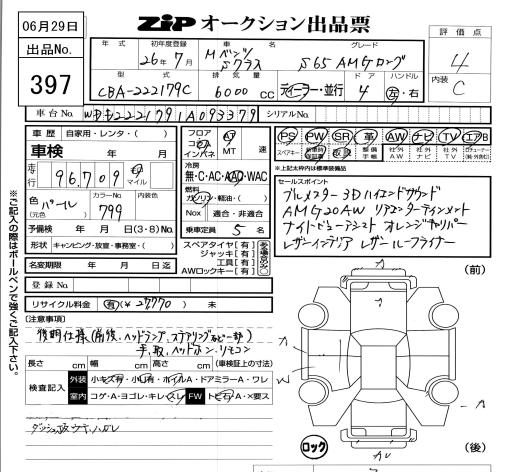 06月29日
ZIP オークション出品票
出品No.
397
年式 初年度登録 車名 グレード
26年7月 Mベンツ Sクラス S65 AMGロング
型式 排気量 ドア ハンドル
CBA-222179C 6000 CC ディーラー・並行 4 左・右
評価点
4
内装
C
車台No. WDD2221791A093379 シリアルNo.
車歴 自家用・レンタ・( )
車検 年 月
走行 96,709 km マイル
色 パール (元色) カラーNo. 799 内装色
予備検 年 月 日(3・8)No.
形状 キャンピング・放送・事務室・( )
名変期限 年 月 日迄
フロア コラム インパネ AT MT 速
冷房 無・C・AC・AAC・WAC
燃料 ガソリン・軽油・( )
Nox 適合・非適合
乗車定員 5 名
スペアタイヤ[有]
ジャッキ[有]
工具[有]
AWロックキー[有]
PS PW SR 革 AW ナビ TV エアB
スペアキー 保証書 取説 整備手帳 社外AW 社外ナビ 社外TV
※上記太枠内は標準装備品
セールスポイント
ブルメスター3Dハイエンドサウンド
AMG20AW リアエンターテインメント
ナイトビューアシスト オレンジキャリパー
レザーインテリア レザールーフライナー
登録No.
リサイクル料金 有(¥27,770) 未
[注意事項]
後期仕様(前後、ヘッドランプ、ステアリングなど一部)
手、取、ヘッドホン、リモコン
長さ cm 幅 cm 高さ cm (車検証上の寸法)
検査記入 外装 小キズ有・小凹有・ホイルA・ドアミラーA・ワレ
室内 コゲ・A・ヨゴレ・キレ・スレ FW トビ石A・×要ス
ダッシュ板ウキ、ハガレ
(前)
(後)
ロック
A
A
W
A
AU
※ご記入の際はボールペンで強くご記入下さい。